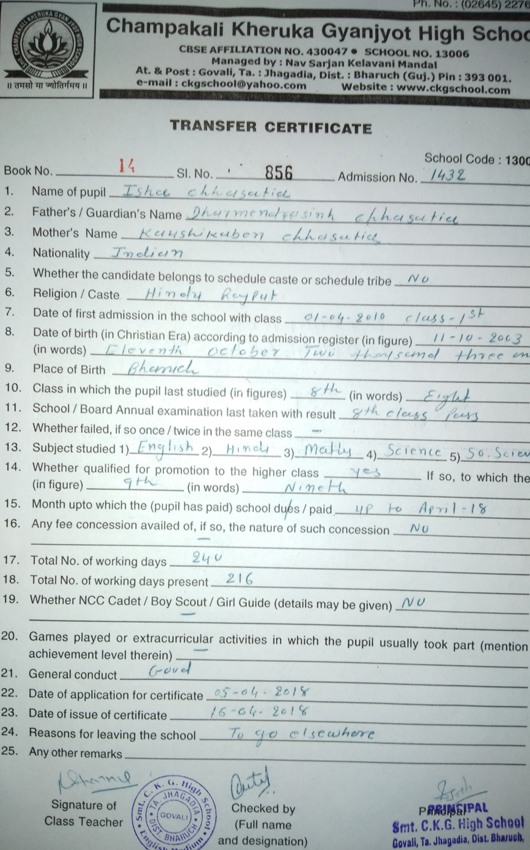 Ph. No. : (02645) 2276
Champakali Kheruka Gyanjyot High Schoo
CBSE AFFILIATION NO. 430047 • SCHOOL NO. 13006
Managed by : Nav Sarjan Kelavani Mandal
At. & Post : Govali, Ta. : Jhagadia, Dist. : Bharuch (Guj.) Pin : 393 001.
e-mail : ckgschool@yahoo.com Website : www.ckgschool.com
CHAMPAKALI KHERUKA GYANJYOT HIGH SCHOOL
॥ तमसो मा ज्योतिर्गमय ॥
TRANSFER CERTIFICATE
School Code : 1300
Book No. 14 Sl. No. 856 Admission No. 1432
1. Name of pupil Isha chhasatia
2. Father's / Guardian's Name Dharmendrasinh chhasatia
3. Mother's Name Kaushikaben chhasatia
4. Nationality Indian
5. Whether the candidate belongs to schedule caste or schedule tribe NO
6. Religion / Caste Hindu Rajput
7. Date of first admission in the school with class 01-04-2010 class-1st
8. Date of birth (in Christian Era) according to admission register (in figure) 11-10-2003
(in words) Eleventh october Two thousand three on
9. Place of Birth Bharuch
10. Class in which the pupil last studied (in figures) 8th (in words) Eight
11. School / Board Annual examination last taken with result 8th class Pass
12. Whether failed, if so once / twice in the same class —
13. Subject studied 1) English 2) Hindi 3) Maths 4) Science 5) So. Scien
14. Whether qualified for promotion to the higher class yes If so, to which the
(in figure) 9th (in words) Nineth
15. Month upto which the (pupil has paid) school dues / paid up to April-18
16. Any fee concession availed of, if so, the nature of such concession NO
—
17. Total No. of working days 240
18. Total No. of working days present 216
19. Whether NCC Cadet / Boy Scout / Girl Guide (details may be given) NO
—
20. Games played or extracurricular activities in which the pupil usually took part (mention
achievement level therein) —
21. General conduct Good
22. Date of application for certificate 05-04-2018
23. Date of issue of certificate 16-04-2018
24. Reasons for leaving the school To go elsewhere
25. Any other remarks
Signature of
Class Teacher
Smt. C. K. G. High School
English Medium
TA. JHAGADIA
GOVALI
DIST. BHARUCH
Checked by
(Full name
and designation)
Principal
PRINCIPAL
Smt. C.K.G. High School
Govali, Ta. Jhagadia, Dist. Bharuch.